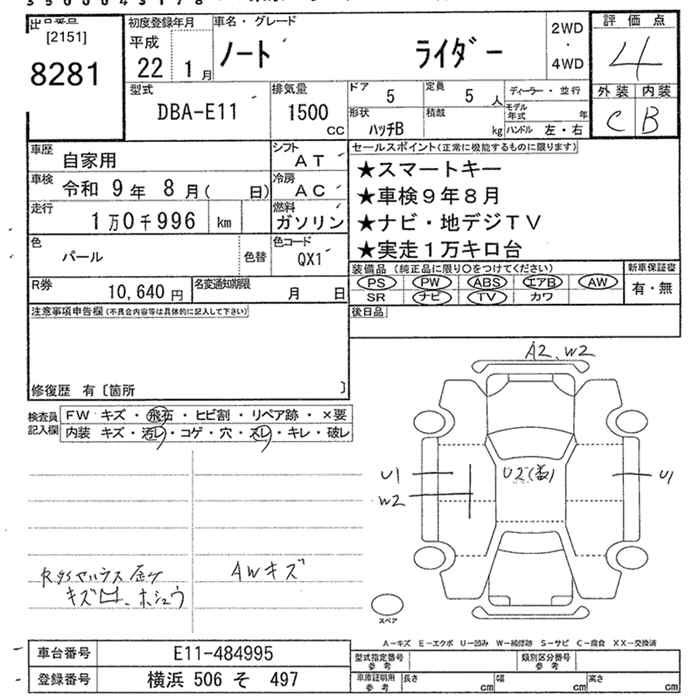 [2151]
8281
初度登録年月
平成
22 1月
車名・グレード
ノート ライダー
2WD
・
4WD
評価点
4
外装 内装
C B
型式
DBA-E11
排気量
1500
CC
ドア
5
定員
5 人
ディーラー・並行
形状
ハッチB
積載
kg
モデル年式 年
ハンドル 左・右
車歴
自家用
シフト
AT
車検
令和 9年 8月( 日)
冷房
AC
走行
1万0千996 km
燃料
ガソリン
色
パール
色替
色コード
QX1
R券
10,640円
名変通知期限
月 日
セールスポイント(正常に機能するものに限ります)
★スマートキー
★車検9年8月
★ナビ・地デジTV
★実走1万キロ台
装備品 (純正品に限り○をつけてください)
新車保証書
PS PW ABS エアB AW
SR ナビ TV カワ
有・無
後日品
注意事項申告欄(不具合内容等は具体的に記入して下さい)
修復歴 有〔箇所 〕
検査員記入欄
FW キズ・飛石・ヒビ割・リペア跡・×要
内装 キズ・汚レ・コゲ・穴・スレ・キレ・破レ
AWキズ
A2、W2
U1
W2
U2
U1
スペア
A-キズ E-エクボ U-凹み W-補修跡 S-サビ C-腐食 XX-交換済
車台番号
E11-484995
登録番号
横浜 506 そ 497
型式指定番号
参考
類別区分番号
参考
車庫証明用
参考
長さ cm
幅 cm
高さ cm